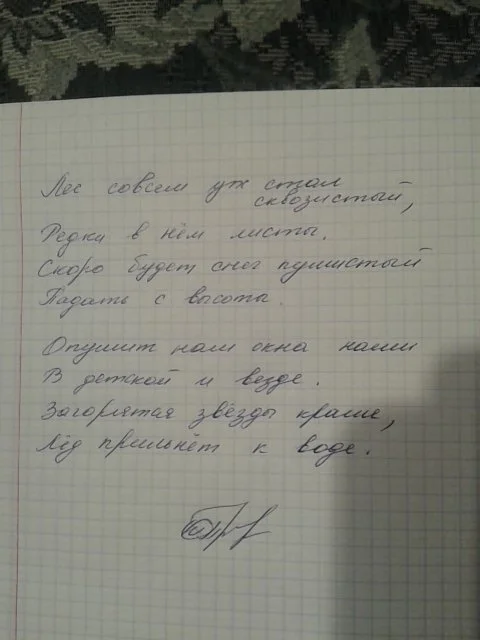 Лес совсем уж стал
сквозистый,
Редки в нём листы.
Скоро будет снег пушистый
Падать с высоты.
Опушит нам окна наши
В детской и везде.
Загорятся звёзды краше,
Лёд прильнёт к воде.